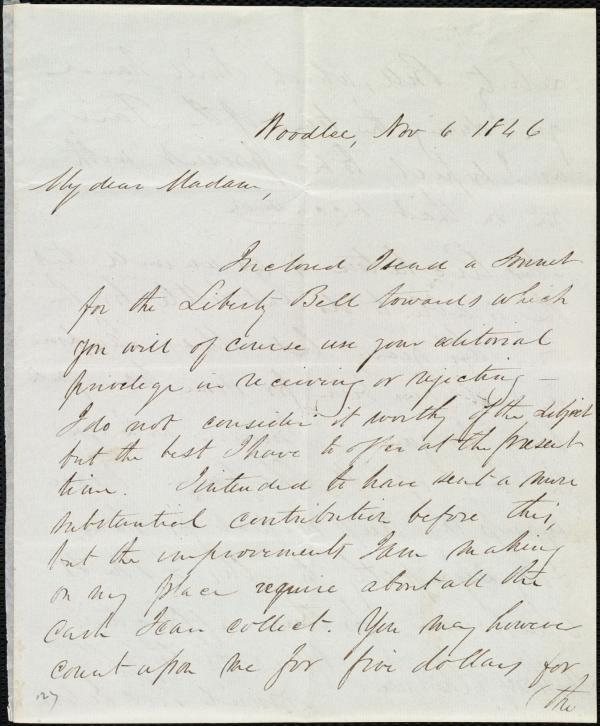 Woodlee, Nov 6 1846
My dear Madam,
Inclosed I send a Sonnet
for the Liberty Bell towards which
you will of course use your editorial
privilege in receiving or rejecting —
I do not consider it worthy of the subject
but the best I have to offer at the present
time. I intended to have sent a more
substantial contribution before this,
but the improvements I am making
on my place require about all the
cash I can collect. You may however
count upon me for five dollars for
(the
127